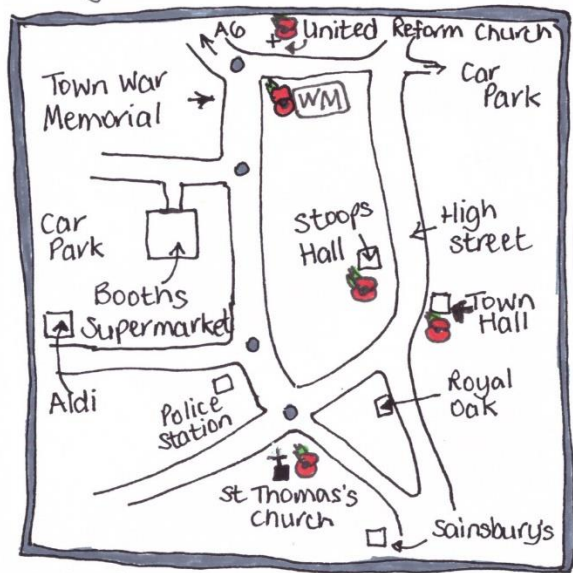 A6
United Reform Church
Town War
Memorial
WM
Car
Park
Stoops
Hall
High
street
Car
Park
Booths
Supermarket
Town
Hall
Aldi
Police
Station
Royal
Oak
St Thomas's
Church
Sainsbury's